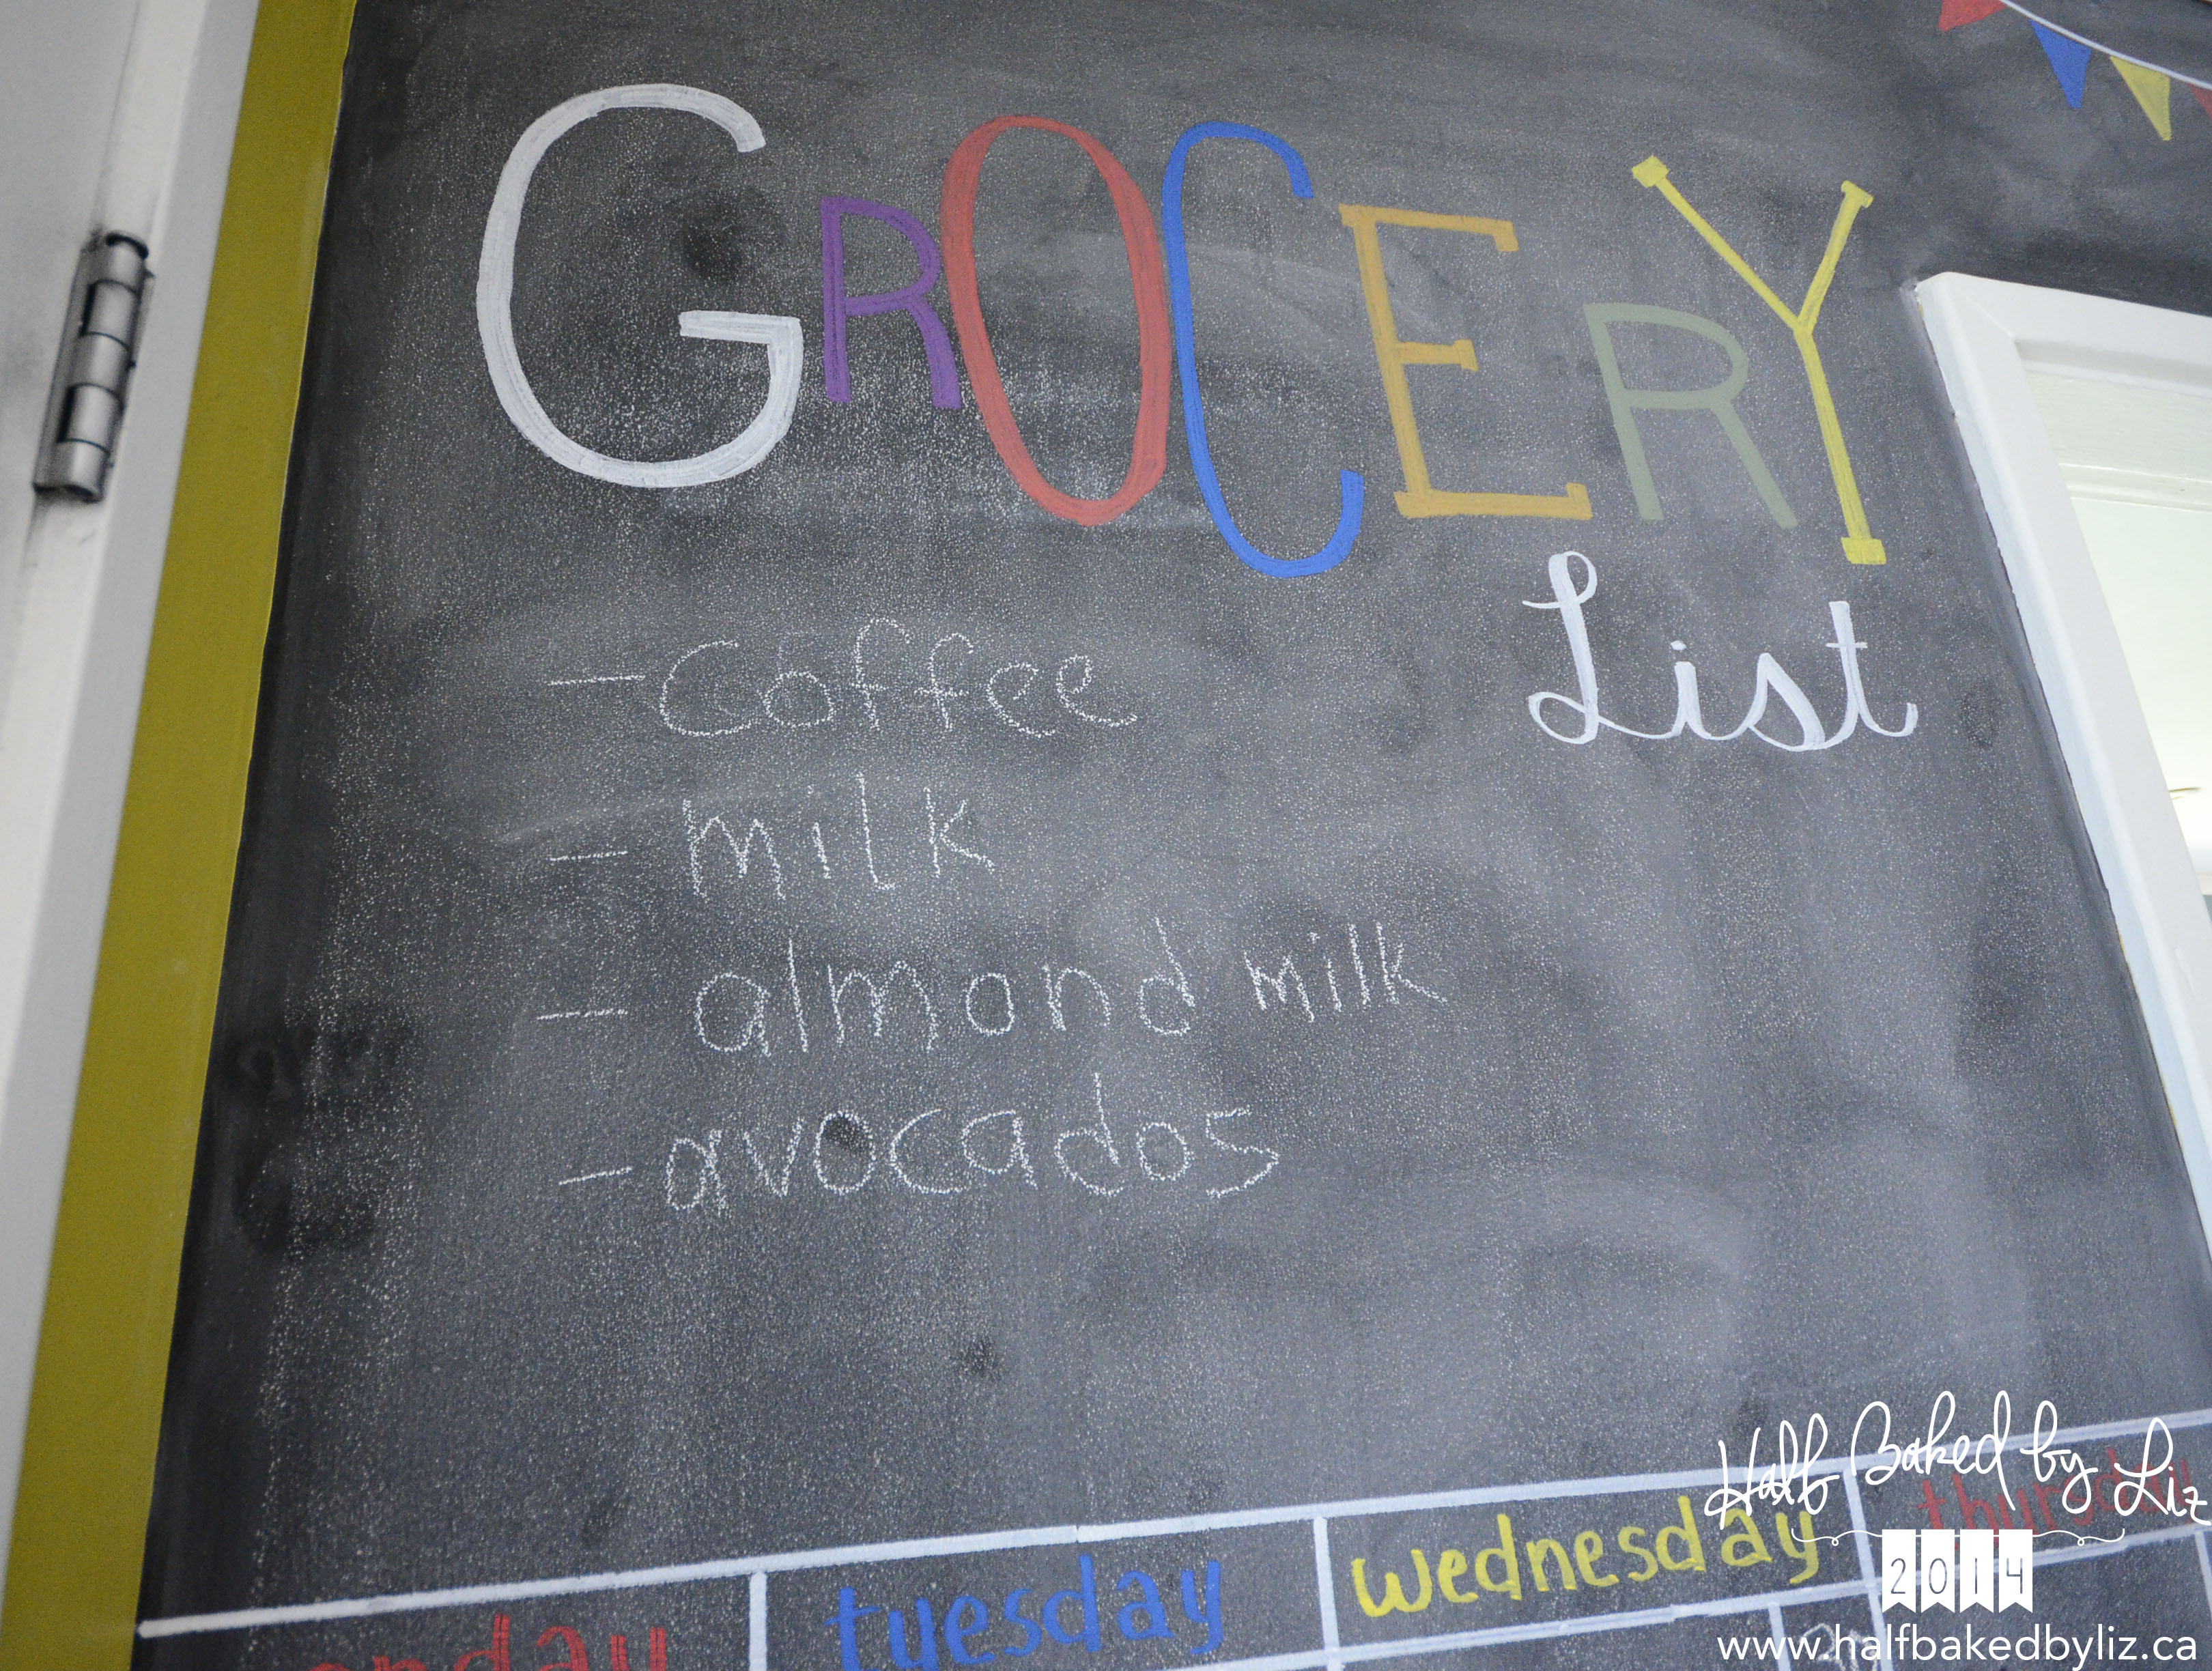 GROCERY
List
- coffee
- milk
- almond milk
- avocados
Half Baked by Liz
tuesday wednesday thursday
2014
www.halfbakedbyliz.ca